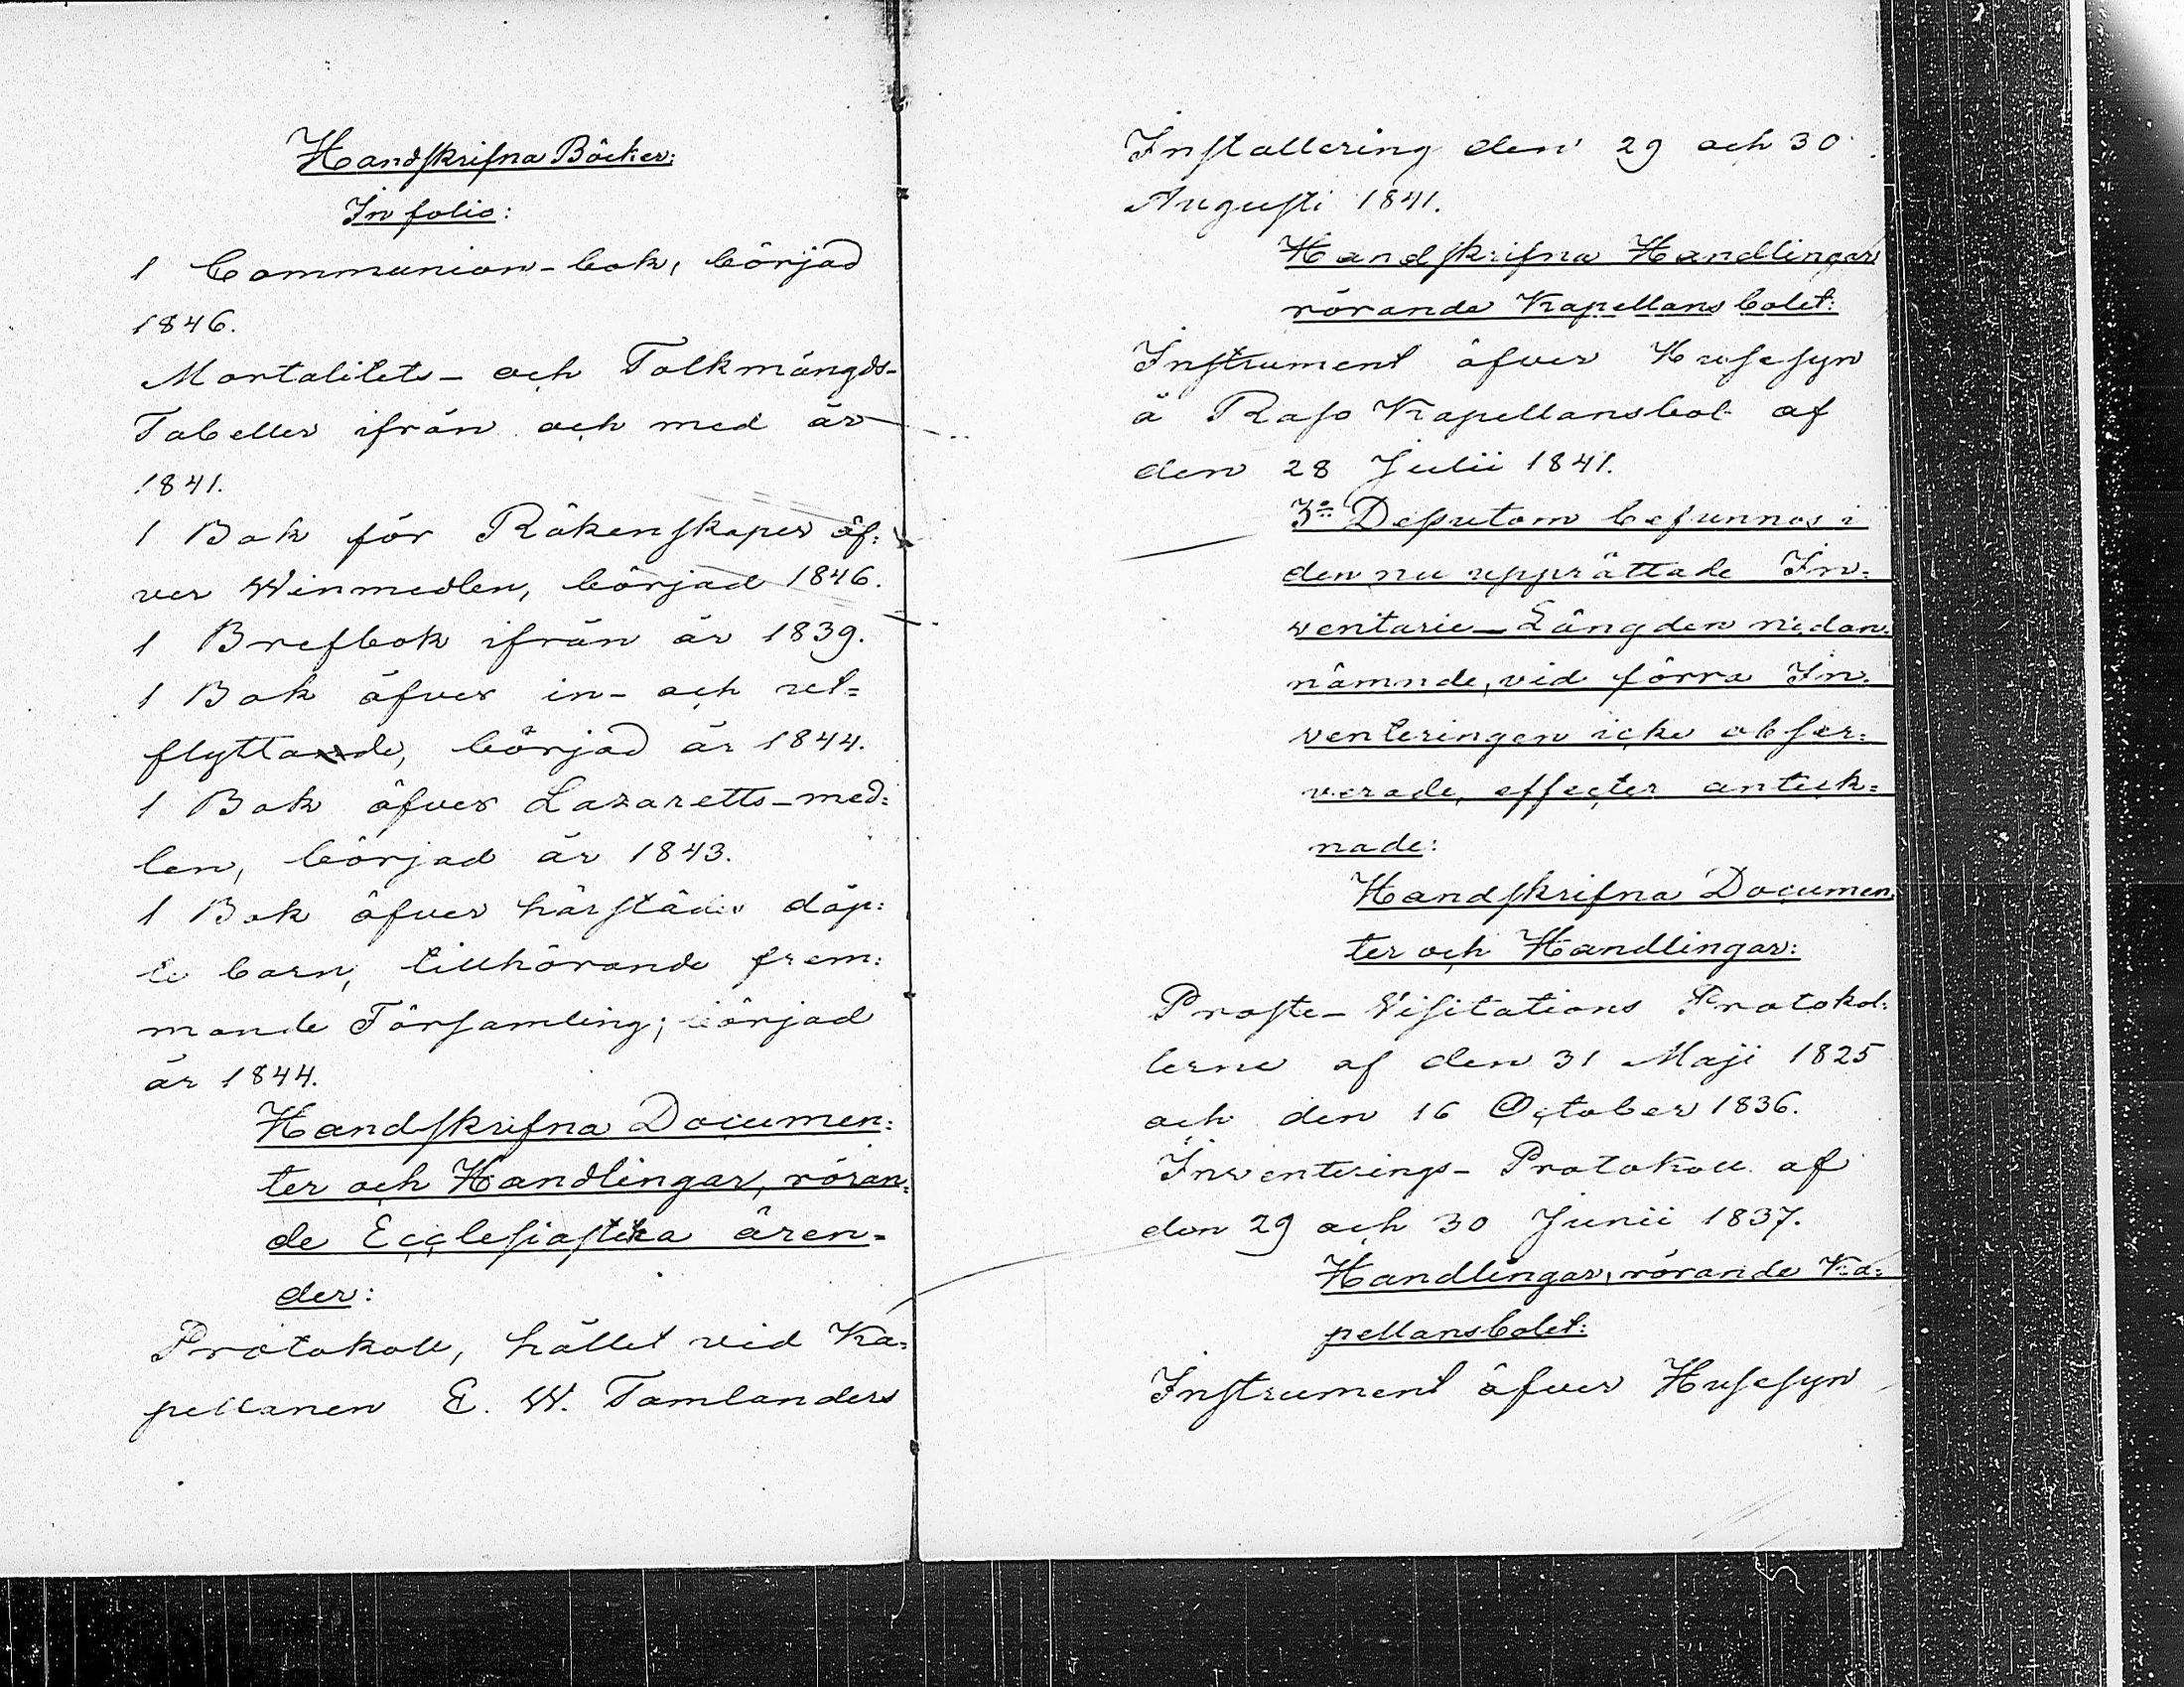 Handskrifna Böcker:
In folio:
1 Communion-bok, börjad
1846.
Mortalitets- och Folkmängds-
Tabeller ifrån och med år
1841.
1 Bok för Räkenskaper öf:
ver Winmedlen, börjad 1846.
1 Brefbok ifrån år 1839.
1 Bok öfver in- och ut=
flyttande, börjad år 1844.
1 Bok öfver Lazaretts-med:
len, börjad år 1843.
1 Bok öfver härstädes döp:
te barn, tillhörande frem:
mande Församling; börjad
år 1844.
Handskrifna Documen:
ter och Handlingar, röran:
de Ecclesiastika ären=
der:
Protokoll, hållet vid Ka:
pellanen E. W. Tamlanders
Installering den 29 och 30
Augusti 1841.
Handskrifna Handlingar
rörande Kapellansbolet:
Instrument öfver Husesyn
å Kapellansbol af
den 28 Julii 1841.
3:o Dessutom befunnos i
den nu upprättade In:
ventarie-Längden nedan:
nämnde, vid förra In:
venteringen icke obser:
verade, effecter anteck:
nade:
Handskrifna Documen:
ter och Handlingar:
Proste-Visitations Protokol:
lerne af den 31 Maji 1825
och den 16 October 1836.
Inventerings-Protokoll af
den 29 och 30 Junii 1837.
Handlingar, rörande Ka:
pellansbolet:
Instrument öfver Husesyn